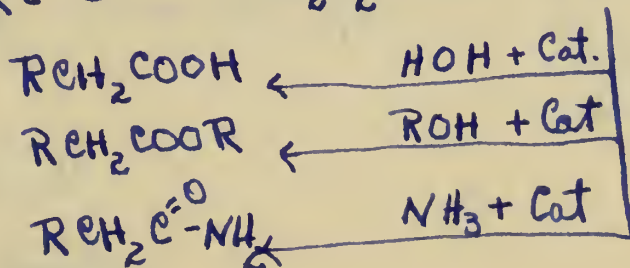 RCH₂COOH ← HOH + Cat.
RCH₂COOR ← ROH + Cat
RCH₂C=O-NH₂ ← NH₃ + Cat